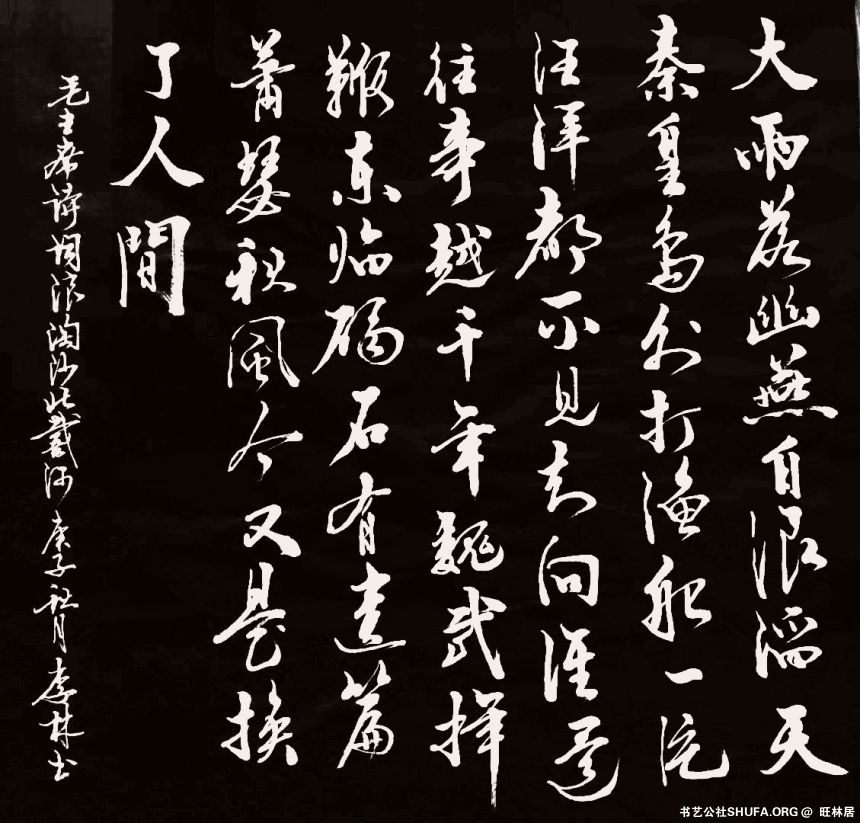 大雨落幽燕白浪滔天
秦皇岛外打渔船一片
汪洋都不见知向谁边
往事越千年魏武挥
鞭东临碣石有遗篇
萧瑟秋風今又是换
了人間
毛主席诗词浪淘沙北戴河 庚子秋月 李林书
书艺公社SHUFA.ORG @ 旺林居